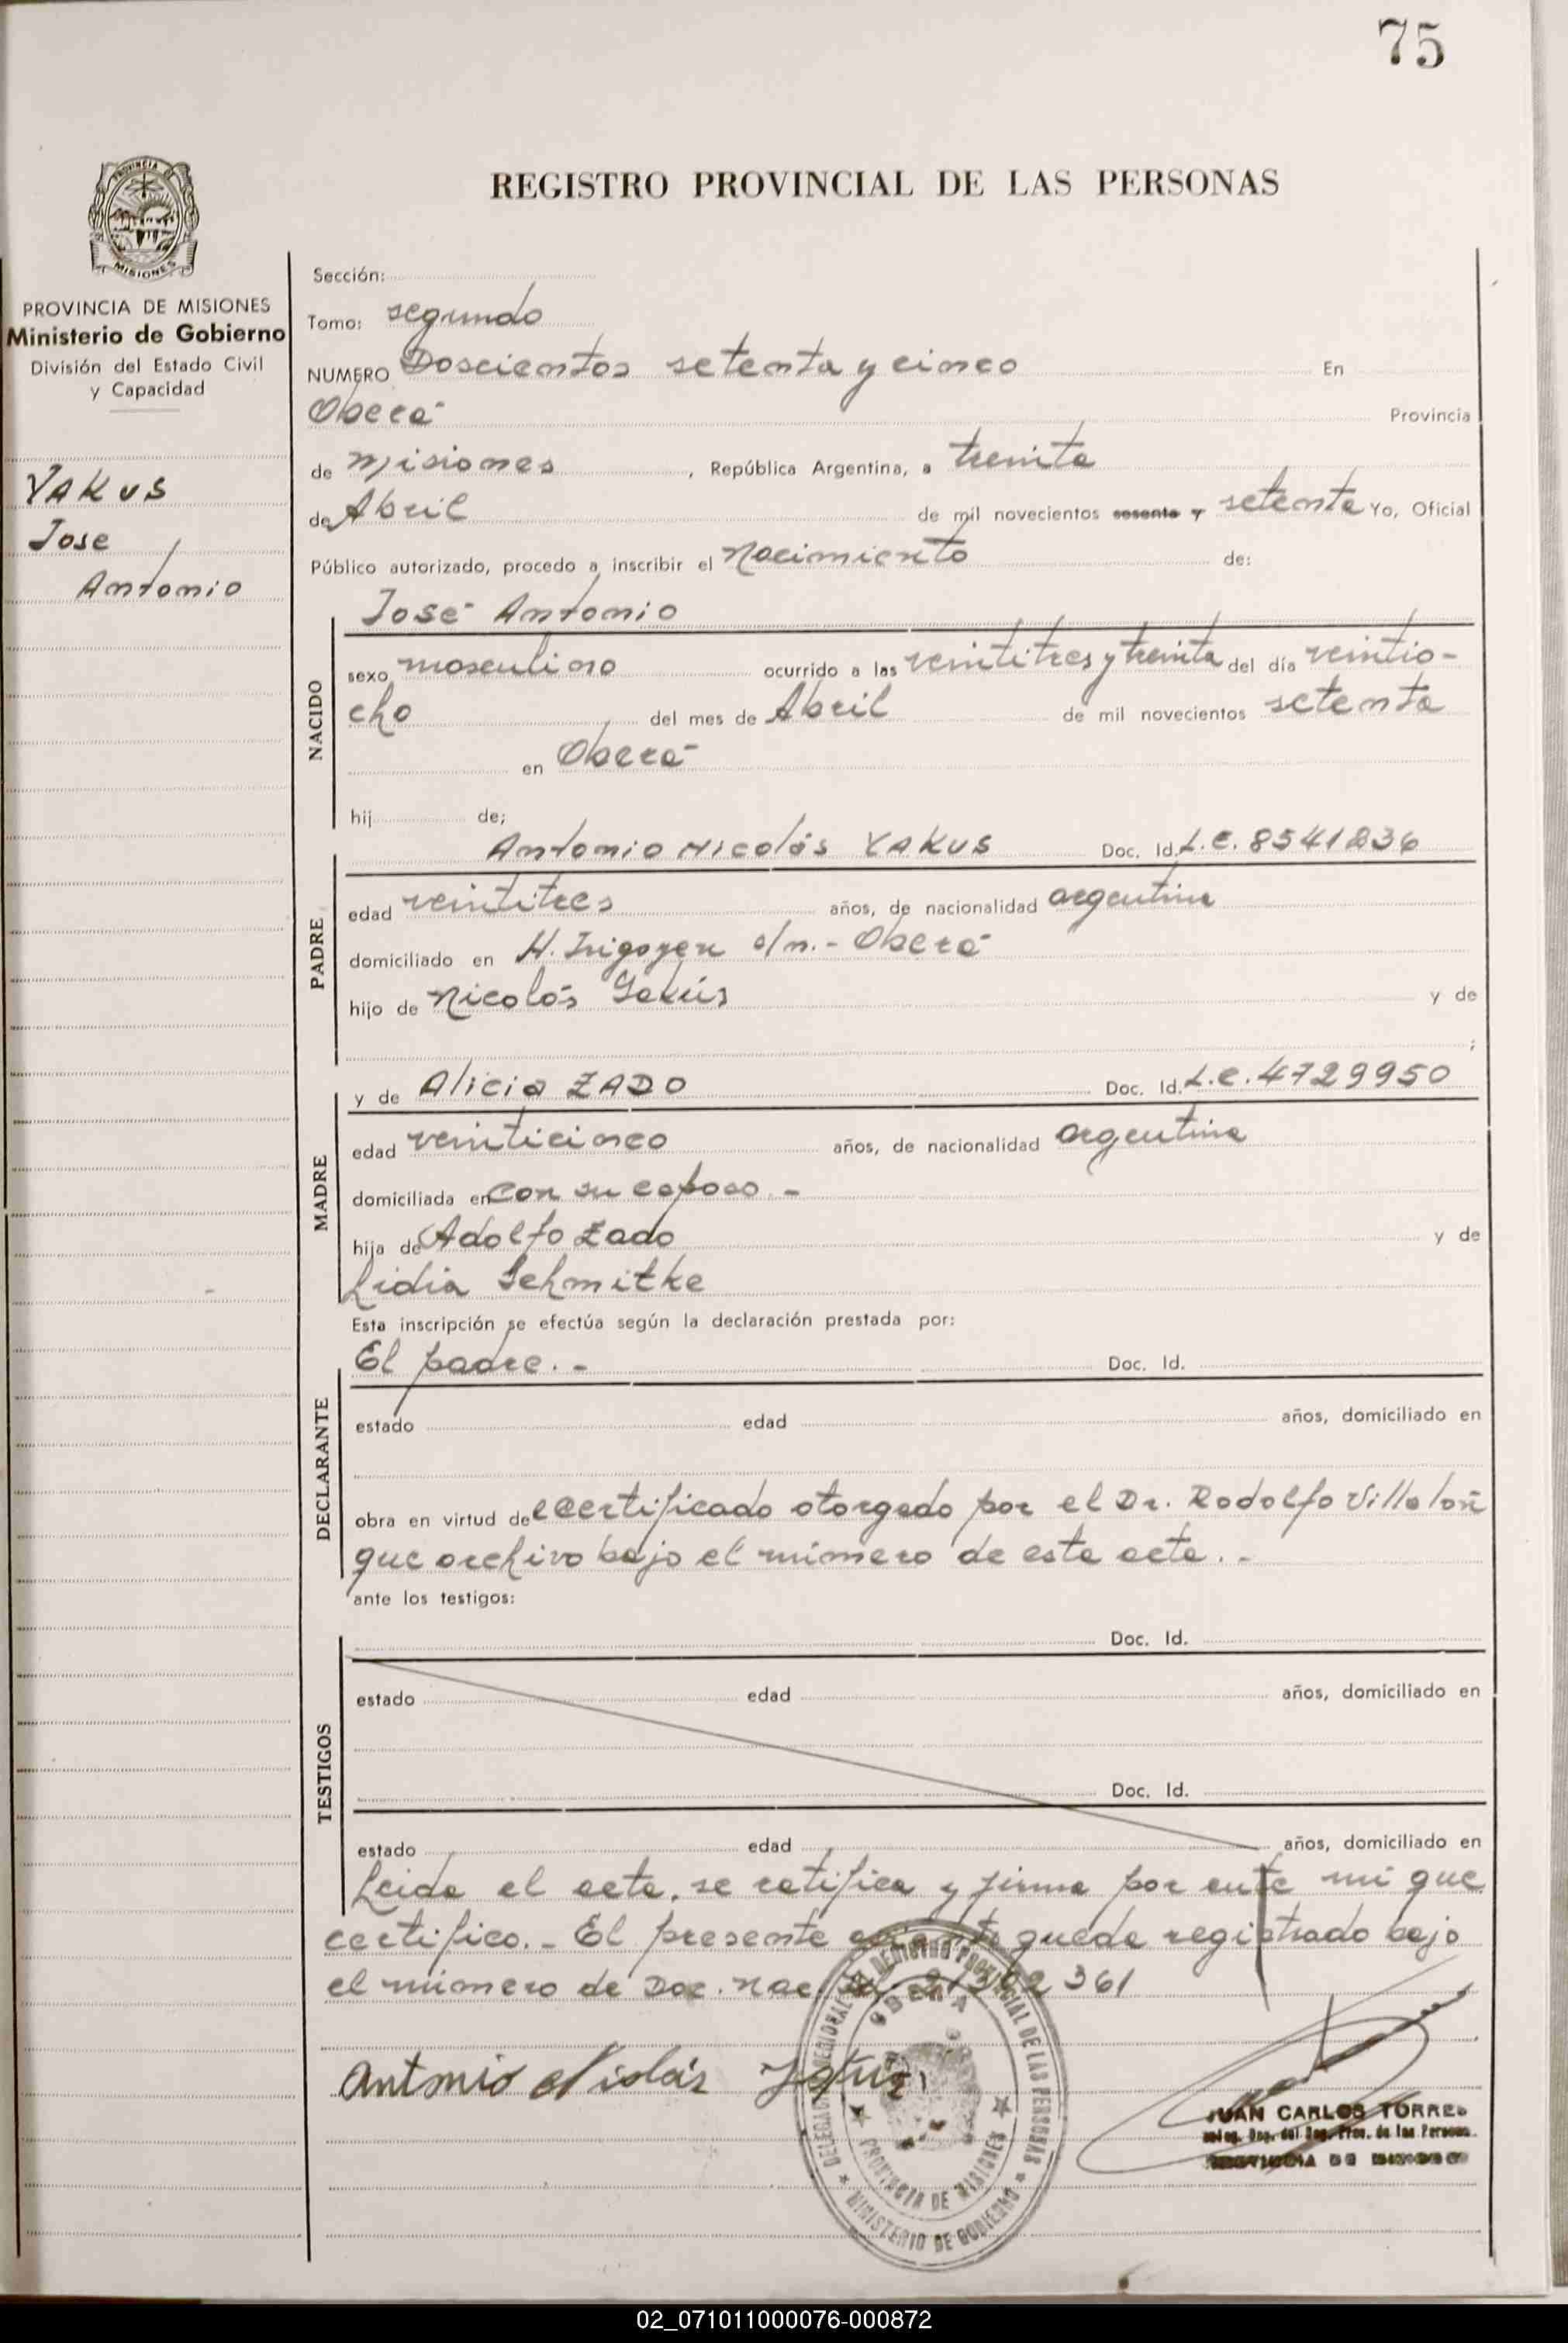 75
PROVINCIA DE
MISIONES
PROVINCIA DE MISIONES
Ministerio de Gobierno
División del Estado Civil
y Capacidad
YAKUS
Jose
Antonio
REGISTRO PROVINCIAL DE LAS PERSONAS
Sección:
Tomo: segundo
NUMERO Doscientos setenta y cinco En
Oberá Provincia
de Misiones, República Argentina, a treinta
de Abril de mil novecientos sesenta y setenta Yo, Oficial
Público autorizado, procedo a inscribir el Nacimiento de:
José Antonio
NACIDO
sexo masculino ocurrido a las veintitres y treinta del día veintio-
cho del mes de Abril de mil novecientos setenta
en Oberá
hij de;
PADRE
Antonio Nicolás YAKUS Doc. Id. L.E. 8541836
edad veintitres años, de nacionalidad argentina
domiciliado en H. Irigoyen s/n.- Oberá
hijo de Nicolás Yakús y de
;
MADRE
y de Alicia ZADO Doc. Id. L.C. 4729950
edad veinticinco años, de nacionalidad argentina
domiciliada en con su esposo.-
hija de Adolfo Zado y de
Lidia Schmitke
Esta inscripción se efectúa según la declaración prestada por:
DECLARANTE
El padre.- Doc. Id.
estado edad años, domiciliado en
obra en virtud de certificado otorgado por el Dr. Rodolfo Villalon
que archivo bajo el número de esta acta.-
ante los testigos:
TESTIGOS
Doc. Id.
estado edad años, domiciliado en
Doc. Id.
estado edad años, domiciliado en
Leida el acta, se ratifica y firma por ante mi que
certifico.- El presente queda registrado bajo
el número de Doc. Nac. 361
Antonio Nicolás Yakús
DELEGACION REGIONAL DEL REGISTRO PROVINCIAL DE LAS PERSONAS
OBERA
PROVINCIA DE MISIONES
MINISTERIO DE GOBIERNO
JUAN CARLOS TORRES
de las Person.
02_071011000076-000872